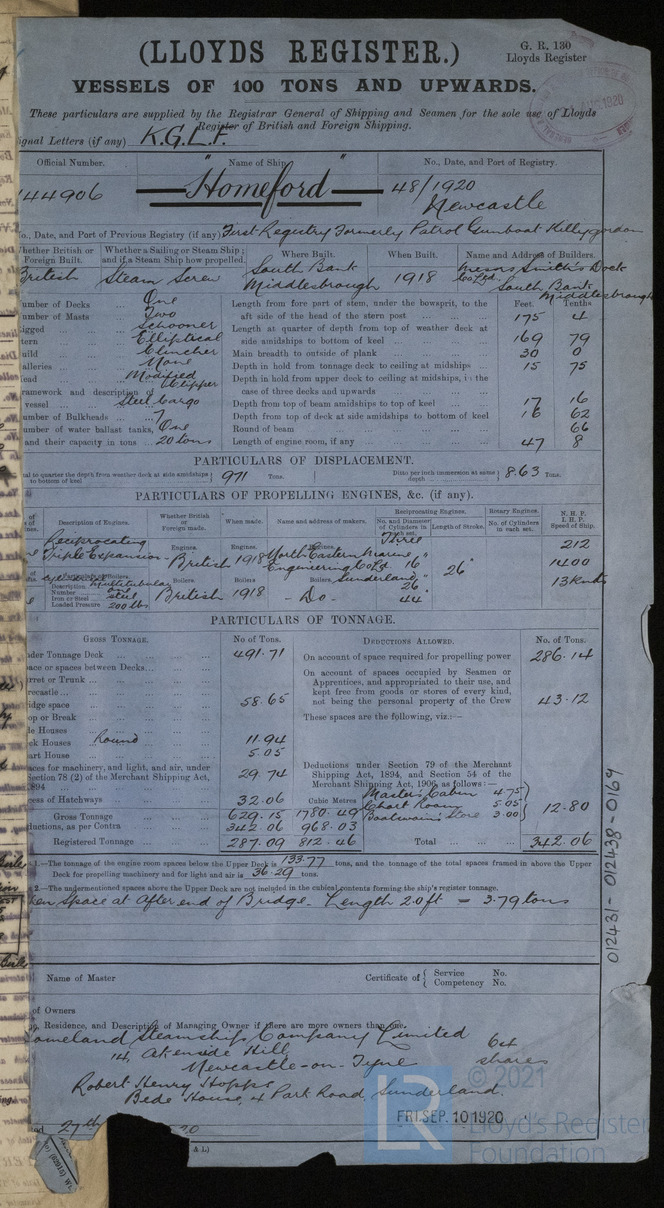 (LLOYDS REGISTER.)
G. R. 130
Lloyds Register
VESSELS OF 100 TONS AND UPWARDS.
These particulars are supplied by the Registrar General of Shipping and Seamen for the sole use of Lloyds
Register of British and Foreign Shipping.
ignal Letters (if any) K.G.L.F.
Official Number. Name of Ship. No., Date, and Port of Registry.
144906 "Homeford" 48/1920
Newcastle
o., Date, and Port of Previous Registry (if any) First Registry Formerly Patrol Gunboat Killygordon
hether British or Foreign Built. Whether a Sailing or Steam Ship; and if a Steam Ship how propelled. Where Built. When Built. Name and Address of Builders.
British Steam Screw South Bank Middlesbrough 1918 Messrs Smith's Dock Co Ltd. South Bank Middlesbrough
Feet. Tenths
umber of Decks One
umber of Masts Two
igged Schooner
tern Elliptical
uild Clincher
alleries None
ead Modified Clipper
ramework and description of vessel Steel Cargo
umber of Bulkheads 7
umber of water ballast tanks, One
and their capacity in tons 20 tons
Length from fore part of stem, under the bowsprit, to the
aft side of the head of the stern post 175 4
Length at quarter of depth from top of weather deck at
side amidships to bottom of keel 169 79
Main breadth to outside of plank 30 0
Depth in hold from tonnage deck to ceiling at midships 15 75
Depth in hold from upper deck to ceiling at midships, in the
case of three decks and upwards
Depth from top of beam amidships to top of keel 17 16
Depth from top of deck at side amidships to bottom of keel 16 62
Round of beam 66
Length of engine room, if any 47 8
PARTICULARS OF DISPLACEMENT.
tal to quarter the depth from weather deck at side amidships to bottom of keel 971 Tons. Ditto per inch immersion at same depth 8.63 Tons.
PARTICULARS OF PROPELLING ENGINES, &c. (if any).
Description of Engines. Whether British or Foreign made. When made. Name and address of makers. Reciprocating Engines. Rotary Engines. N. H. P. I. H. P. Speed of Ship.
No. and Diameter of Cylinders in each set. Length of Stroke. No. of Cylinders in each set.
Reciprocating Engines. Engines. Engines. Three 212
Triple Expansion British 1918 North Eastern Marine Engineering Co Ltd. Sunderland 16" 26" 26" 1400
Boilers. Boilers Boilers Boilers,
Description Multitubular
Number One
Iron or Steel Steel
Loaded Pressure 200 lbs
British 1918 - Do - 44" 13 Knots
PARTICULARS OF TONNAGE.
GROSS TONNAGE. No of Tons. DEDUCTIONS ALLOWED. No. of Tons.
der Tonnage Deck 491.71
ace or spaces between Decks
rret or Trunk
recastle
idge space 58.65
op or Break
de Houses
ek Houses Round 11.94
art House 5.05
aces for machinery, and light, and air, under
Section 78 (2) of the Merchant Shipping Act,
1894 29.74
cess of Hatchways 32.06
Cubic Metres
Gross Tonnage 629.15 1780.49
ductions, as per Contra 342.06 968.03
Registered Tonnage 287.09 812.46
On account of space required for propelling power 286.14
On account of spaces occupied by Seamen or
Apprentices, and appropriated to their use, and
kept free from goods or stores of every kind,
not being the personal property of the Crew 43.12
These spaces are the following, viz:—
Deductions under Section 79 of the Merchant
Shipping Act, 1894, and Section 54 of the
Merchant Shipping Act, 1906, as follows:—
Masters Cabin 4.75
Chart Room 5.05
Boatswains Store 3.00
12.80
Total 342.06
1.—The tonnage of the engine room spaces below the Upper Deck is 133.77 tons, and the tonnage of the total spaces framed in above the Upper
Deck for propelling machinery and for light and air is 36.29 tons.
2.—The undermentioned spaces above the Upper Deck are not included in the cubical contents forming the ship's register tonnage.
en Space at after end of Bridge. Length 2.0 ft = 3.79 tons
Name of Master Certificate of { Service No.
Competency No.
of Owners
Residence, and Description of Managing Owner if there are more owners than one.
omeland Steamship Company Limited
14 Akenside Hill
Newcastle-on-Tyne 64 shares
Robert Henry Hopps
Bede House, 4 Park Road, Sunderland.
FRI. SEP. 10 1920
27th
& L.)
012431-012438-0169
© 2021
Lloyd's Register
Foundation
LR